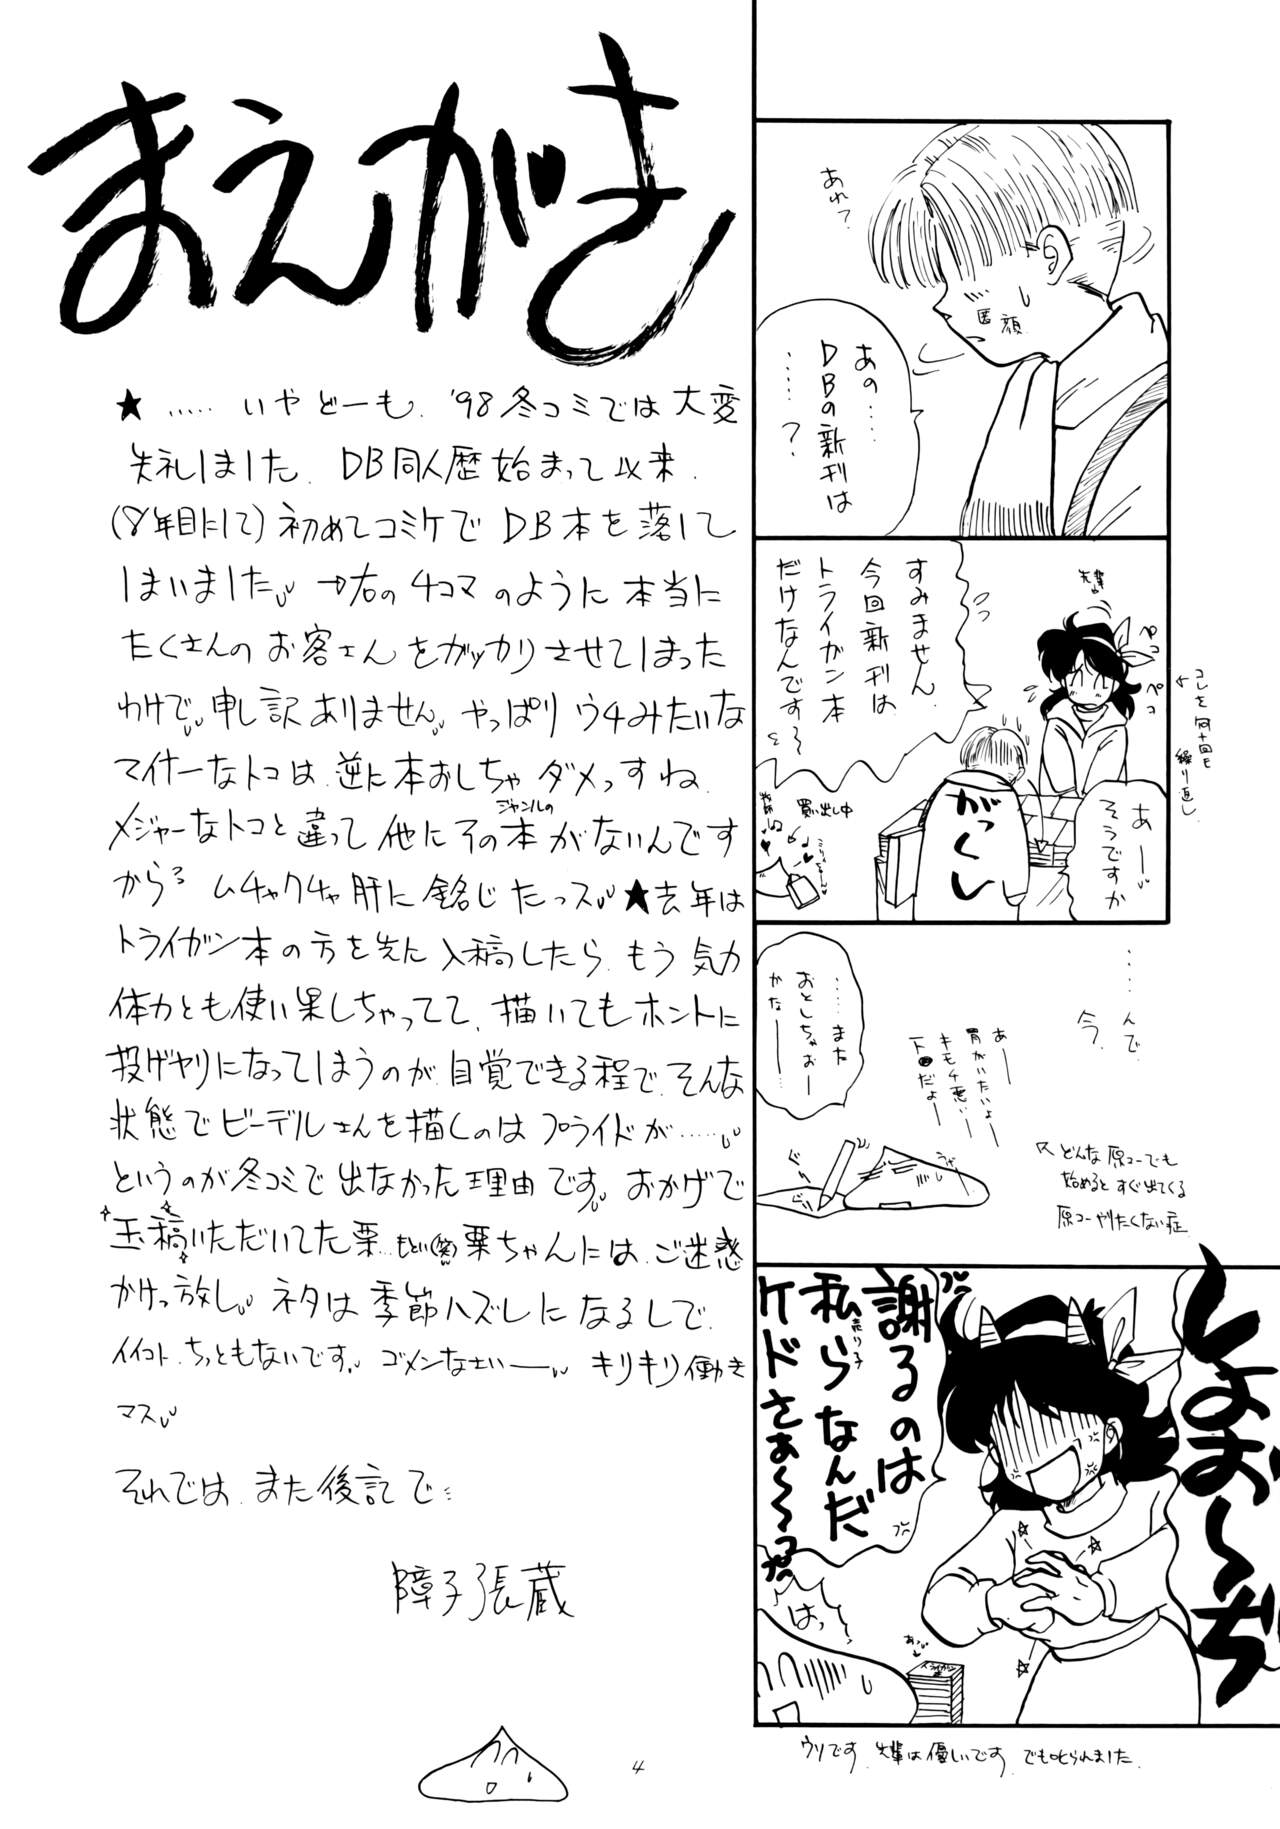 まえがき
★……いやどーも、'98冬コミでは大変
失礼しました。DB同人歴始まって以来、
(8年目にして)初めてコミケでDB本を落して
しまいました。→右の4コマのように本当に
たくさんのお客さんをガッカリさせてしまった
わけで、申し訳ありません。やっぱりウチみたいな
マイナーなトコは逆に本おしちゃダメっすね。
メジャーなトコと違って他にそのジャンルの本がないんです
から。ムチャクチャ肝に銘じたっス。★去年は
トライガン本の方を先に入稿したら、もう気力
体力とも使い果しちゃってて、描いてもホントに
投げヤリになってしまうのが自覚できる程で、そんな
状態でビーデルさんを描くのはプライドが……
というのが冬コミで出なかった理由です。おかげで
玉稿いただいてた栗…もとい(笑)栗ちゃんには、ご迷惑
かけっ放し。ネタは季節ハズレになるしで、
イイコト、ちっともないです。ゴメンなさいー。キリキリ働き
マス。
それでは、また後記で…
障子張蔵
4
あれ?
匿顔
あの……
DBの新刊は
……?
先輩
ペコ
ペコ
コレを何十回も
繰り返し
すみません
今回新刊は
トライガン本
だけなんです〜
あー
そうですか
がっくし
買い出し中
……んで、
今、
……また
おとしちゃおー
かなー
あー
胃がいたいよー
キモチ悪いー
下■だよー
ぐり
ぐり
どんな原コーでも
始めると すぐ出てくる
原コーやりたくない症
しょお〜ぢ
謝るのは
私ら売り子なんだ
ケドさぁ〜〜っ
はっ
トライガン本
ウソです。先輩は優しいです。でも叱られました。